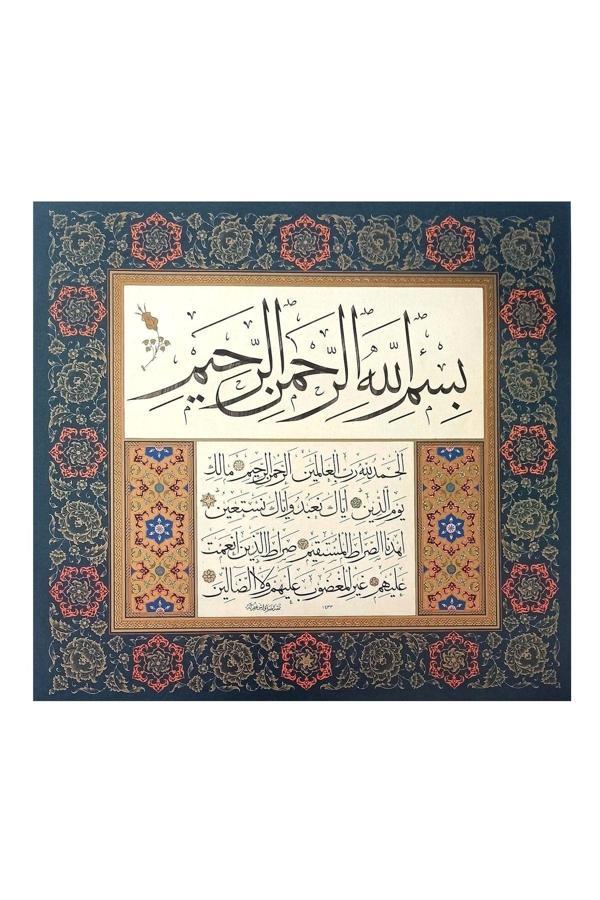 بسم الله الرحمن الرحيم
الحمد لله رب العالمين الرحمن الرحيم مالك
يوم الدين اياك نعبد واياك نستعين
اهدنا الصراط المستقيم صراط الذين انعمت
عليهم غير المغضوب عليهم ولا الضالين
١٤٣٣